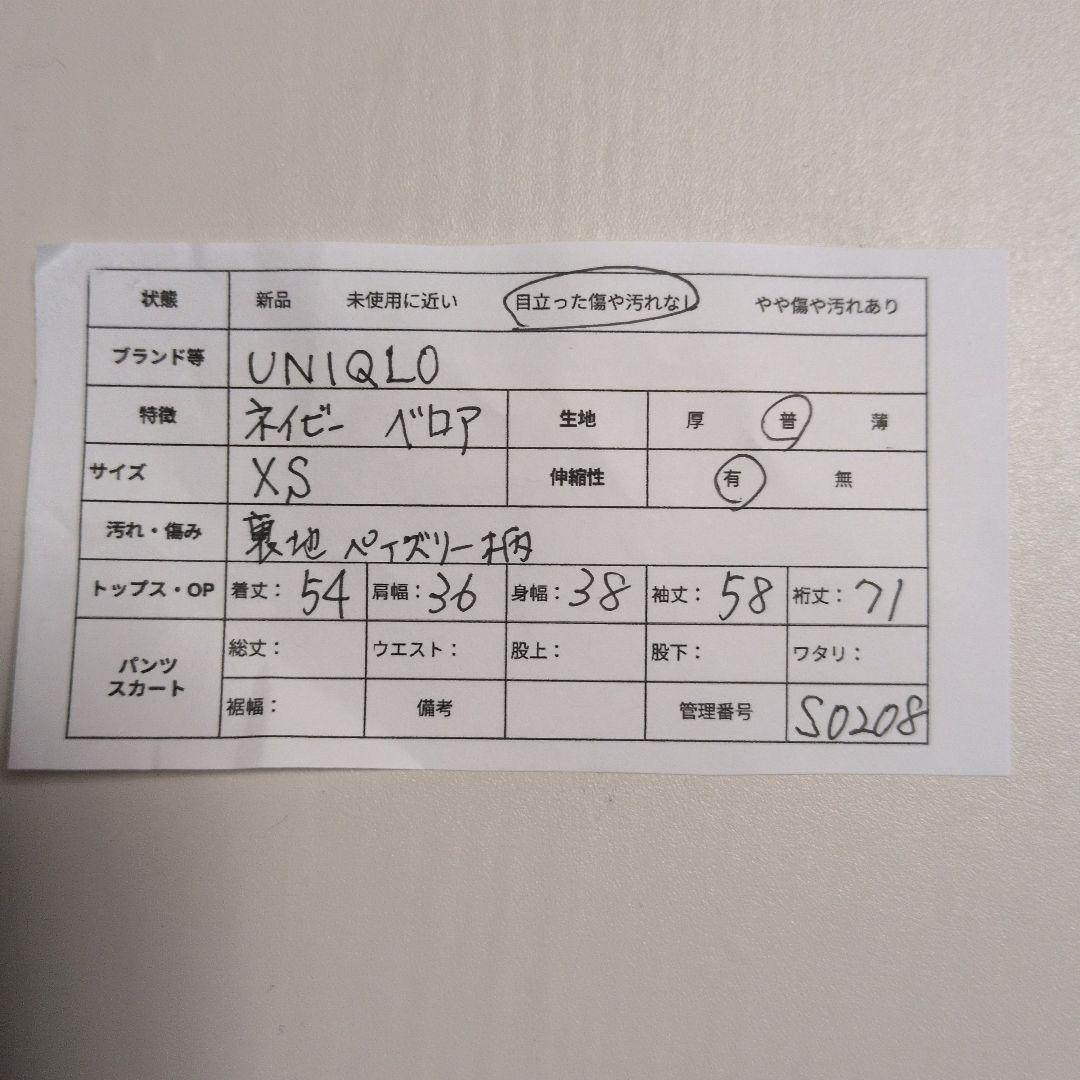 状態 新品 未使用に近い 目立った傷や汚れなし やや傷や汚れあり
ブランド等 UNIQLO
特徴 ネイビー ベロア 生地 厚 普 薄
サイズ XS 伸縮性 有 無
汚れ・傷み 裏地 ペイズリー柄
トップス・OP 着丈: 54 肩幅: 36 身幅: 38 袖丈: 58 裄丈: 71
パンツ スカート 総丈: ウエスト: 股上: 股下: ワタリ:
裾幅: 備考 管理番号 S0208